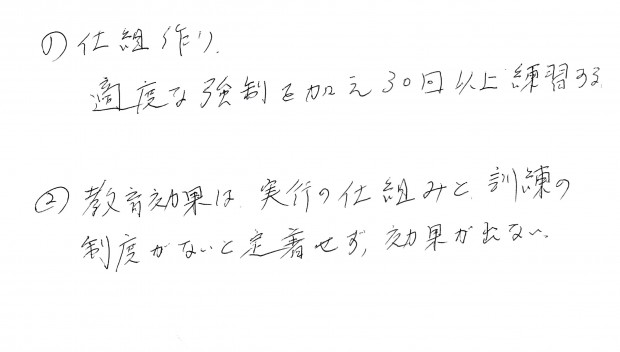 ① 仕組作り.
適度な強制を加え30回以上練習する
② 教育効果は、実行の仕組みと、訓練の
制度がないと定着せず、効果が出ない.